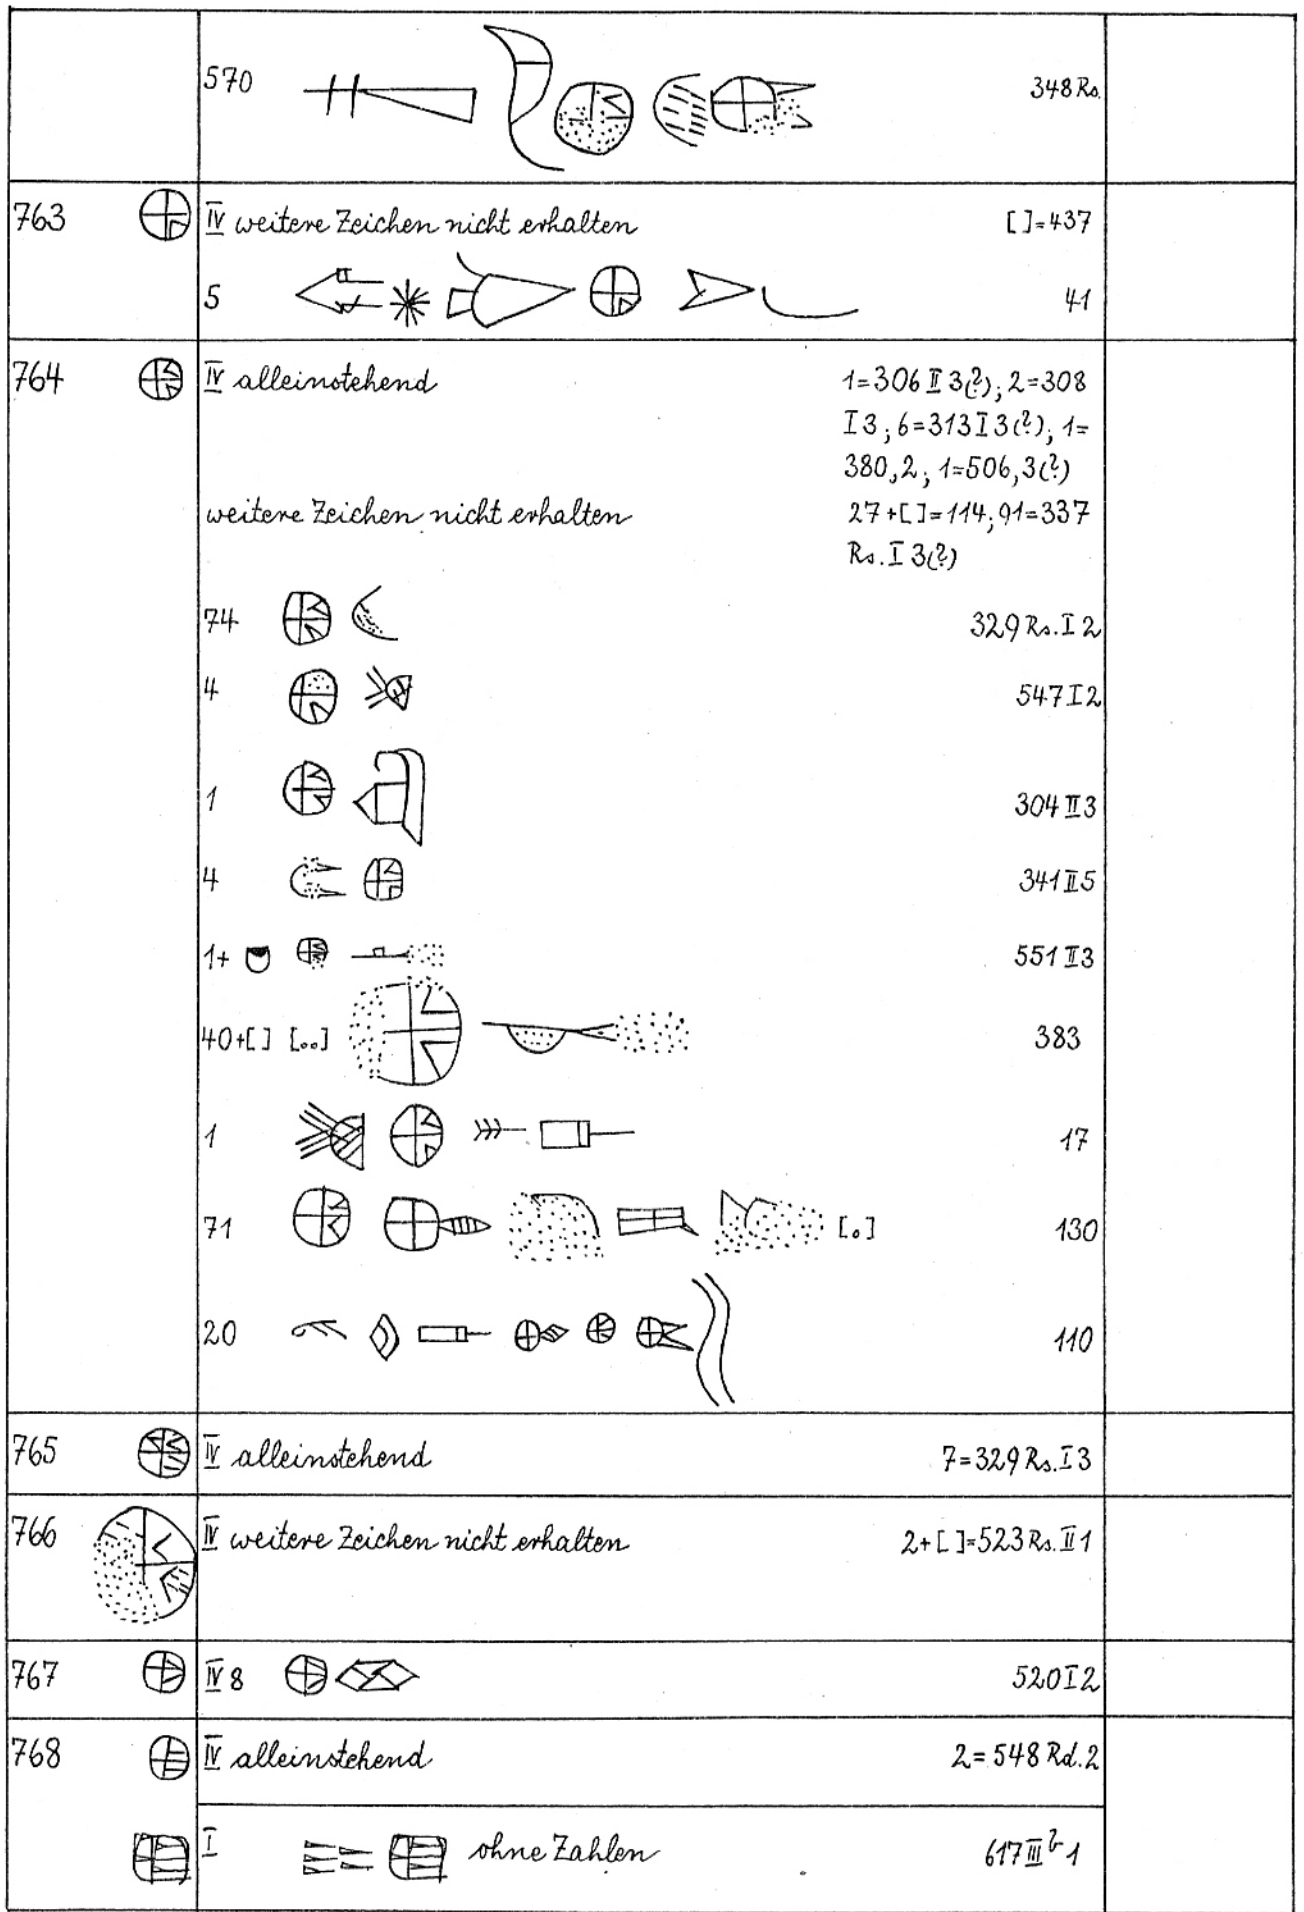 570 348 Rs.
763 IV weitere Zeichen nicht erhalten [ ]=437
5 41
764 IV alleinstehend 1=306 II 3(?); 2=308
I 3; 6=313 I 3(?); 1=
380,2; 1=506,3(?)
weitere Zeichen nicht erhalten 27+[ ]=114; 91=337
Rs. I 3(?)
74 329 Rs. I 2
4 547 I 2
1 304 II 3
4 341 II 5
1+ 551 II 3
40+[ ] [..] 383
1 17
71 [.] 130
20 110
765 IV alleinstehend 7=329 Rs. I 3
766 IV weitere Zeichen nicht erhalten 2+[ ]=523 Rs. II 1
767 IV 8 520 I 2
768 IV alleinstehend 2=548 Rd. 2
I ohne Zahlen 617 III ? 1